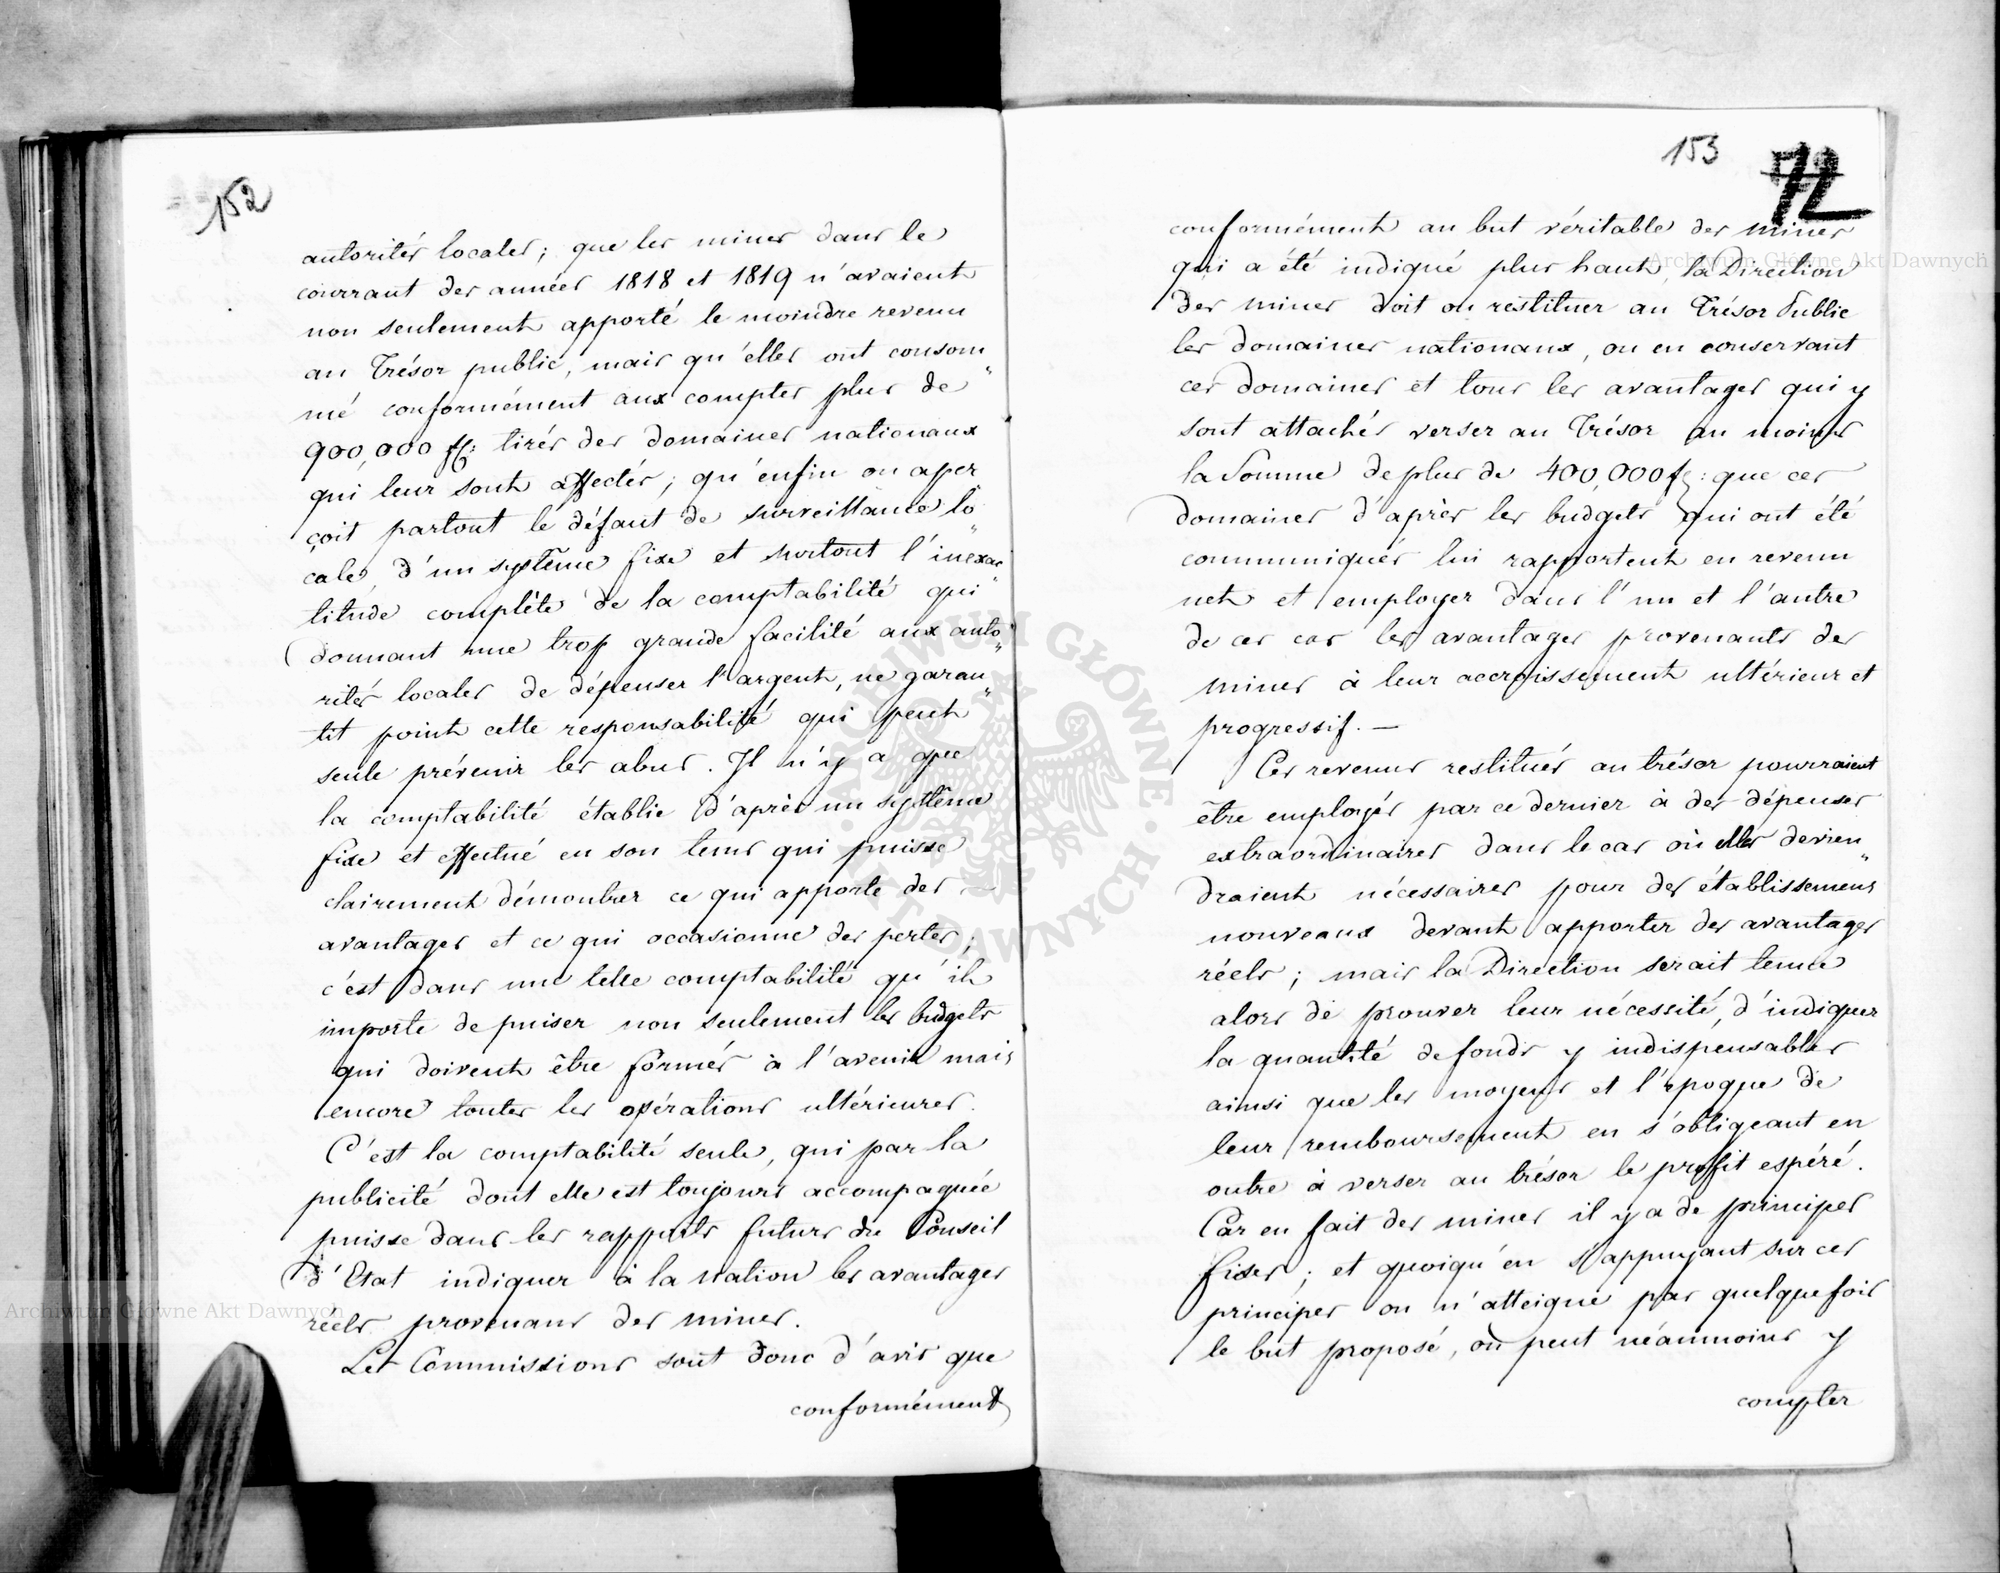 152
autorités locales; que les mines dans le
courrant des années 1818 et 1819 n'avaient
non seulement apporté le moindre revenu
au Trésor public, mais qu'elles ont consom„
mé conformément aux comptes plus de
900,000 fl: tirés des domaines nationaux
qui leur sont affectés; qu'enfin on aper„
çoit partout le défaut de surveillance lo„
cale, d'un système fixe et surtout l'inexac„
titude complète de la comptabilité qui
donnant une trop grande facilité aux auto„
rités locales de dépenser l'argent, ne garan„
tit point cette responsabilité qui peut
seule prévenir les abus. Il n'y a que
la comptabilité établie d'après un système
fixe et effectué en son tems qui puisse
clairement démontrer ce qui apporte des —
avantages et ce qui occasionne des pertes;
c'est dans une telle comptabilité qu'il
importe de puiser non seulement les budgets
qui doivent être formés à l'avenir mais
encore toutes les opérations ultérieures.
C'est la comptabilité seule, qui par la
publicité dont elle est toujours accompagnée
puisse dans les rapports futurs du Conseil
d'Etat indiquer à la nation les avantages
réels provenans des mines.
Les Commissions sont donc d'avis que
conformément
153
72
conformément au but véritable des mines
qui a été indiqué plus haut, la Direction
des mines doit ou restituer au Trésor Public
les domaines nationaux, ou en conservant
ces domaines et tous les avantages qui y
sont attachés verser au Trésor au moins
la Somme de plus de 400,000 fl: que ces
domaines d'après les budgets qui ont été
communiqués lui rapportent en revenu
net et employer dans l'un et l'autre
de ces cas les avantages provenants des
mines à leur accroissement ultérieur et
progressif. —
Ces revenus restitués au trésor pourraient
être employés par ce dernier à des dépenses
extraordinaires dans le cas où elles devien„
draient nécessaires pour des établissemens
nouveaux devant apporter des avantages
réels; mais la Direction serait tenue
alors de prouver leur nécessité, d'indiquer
la quantité de fonds y indispensables
ainsi que les moyens et l'époque de
leur remboursement en s'obligeant en
outre à verser au trésor le profit espéré.
Car en fait des mines il y a de principes
fixes; et quoiqu'en s'appuyant sur ces
principes on n'atteigne pas quelquefois
le but proposé, on peut néanmoins y
compter
Archiwum Główne Akt Dawnych
Archiwum Główne Akt Dawnych
ARCHIWUM GŁÓWNE · AKT DAWNYCH ·